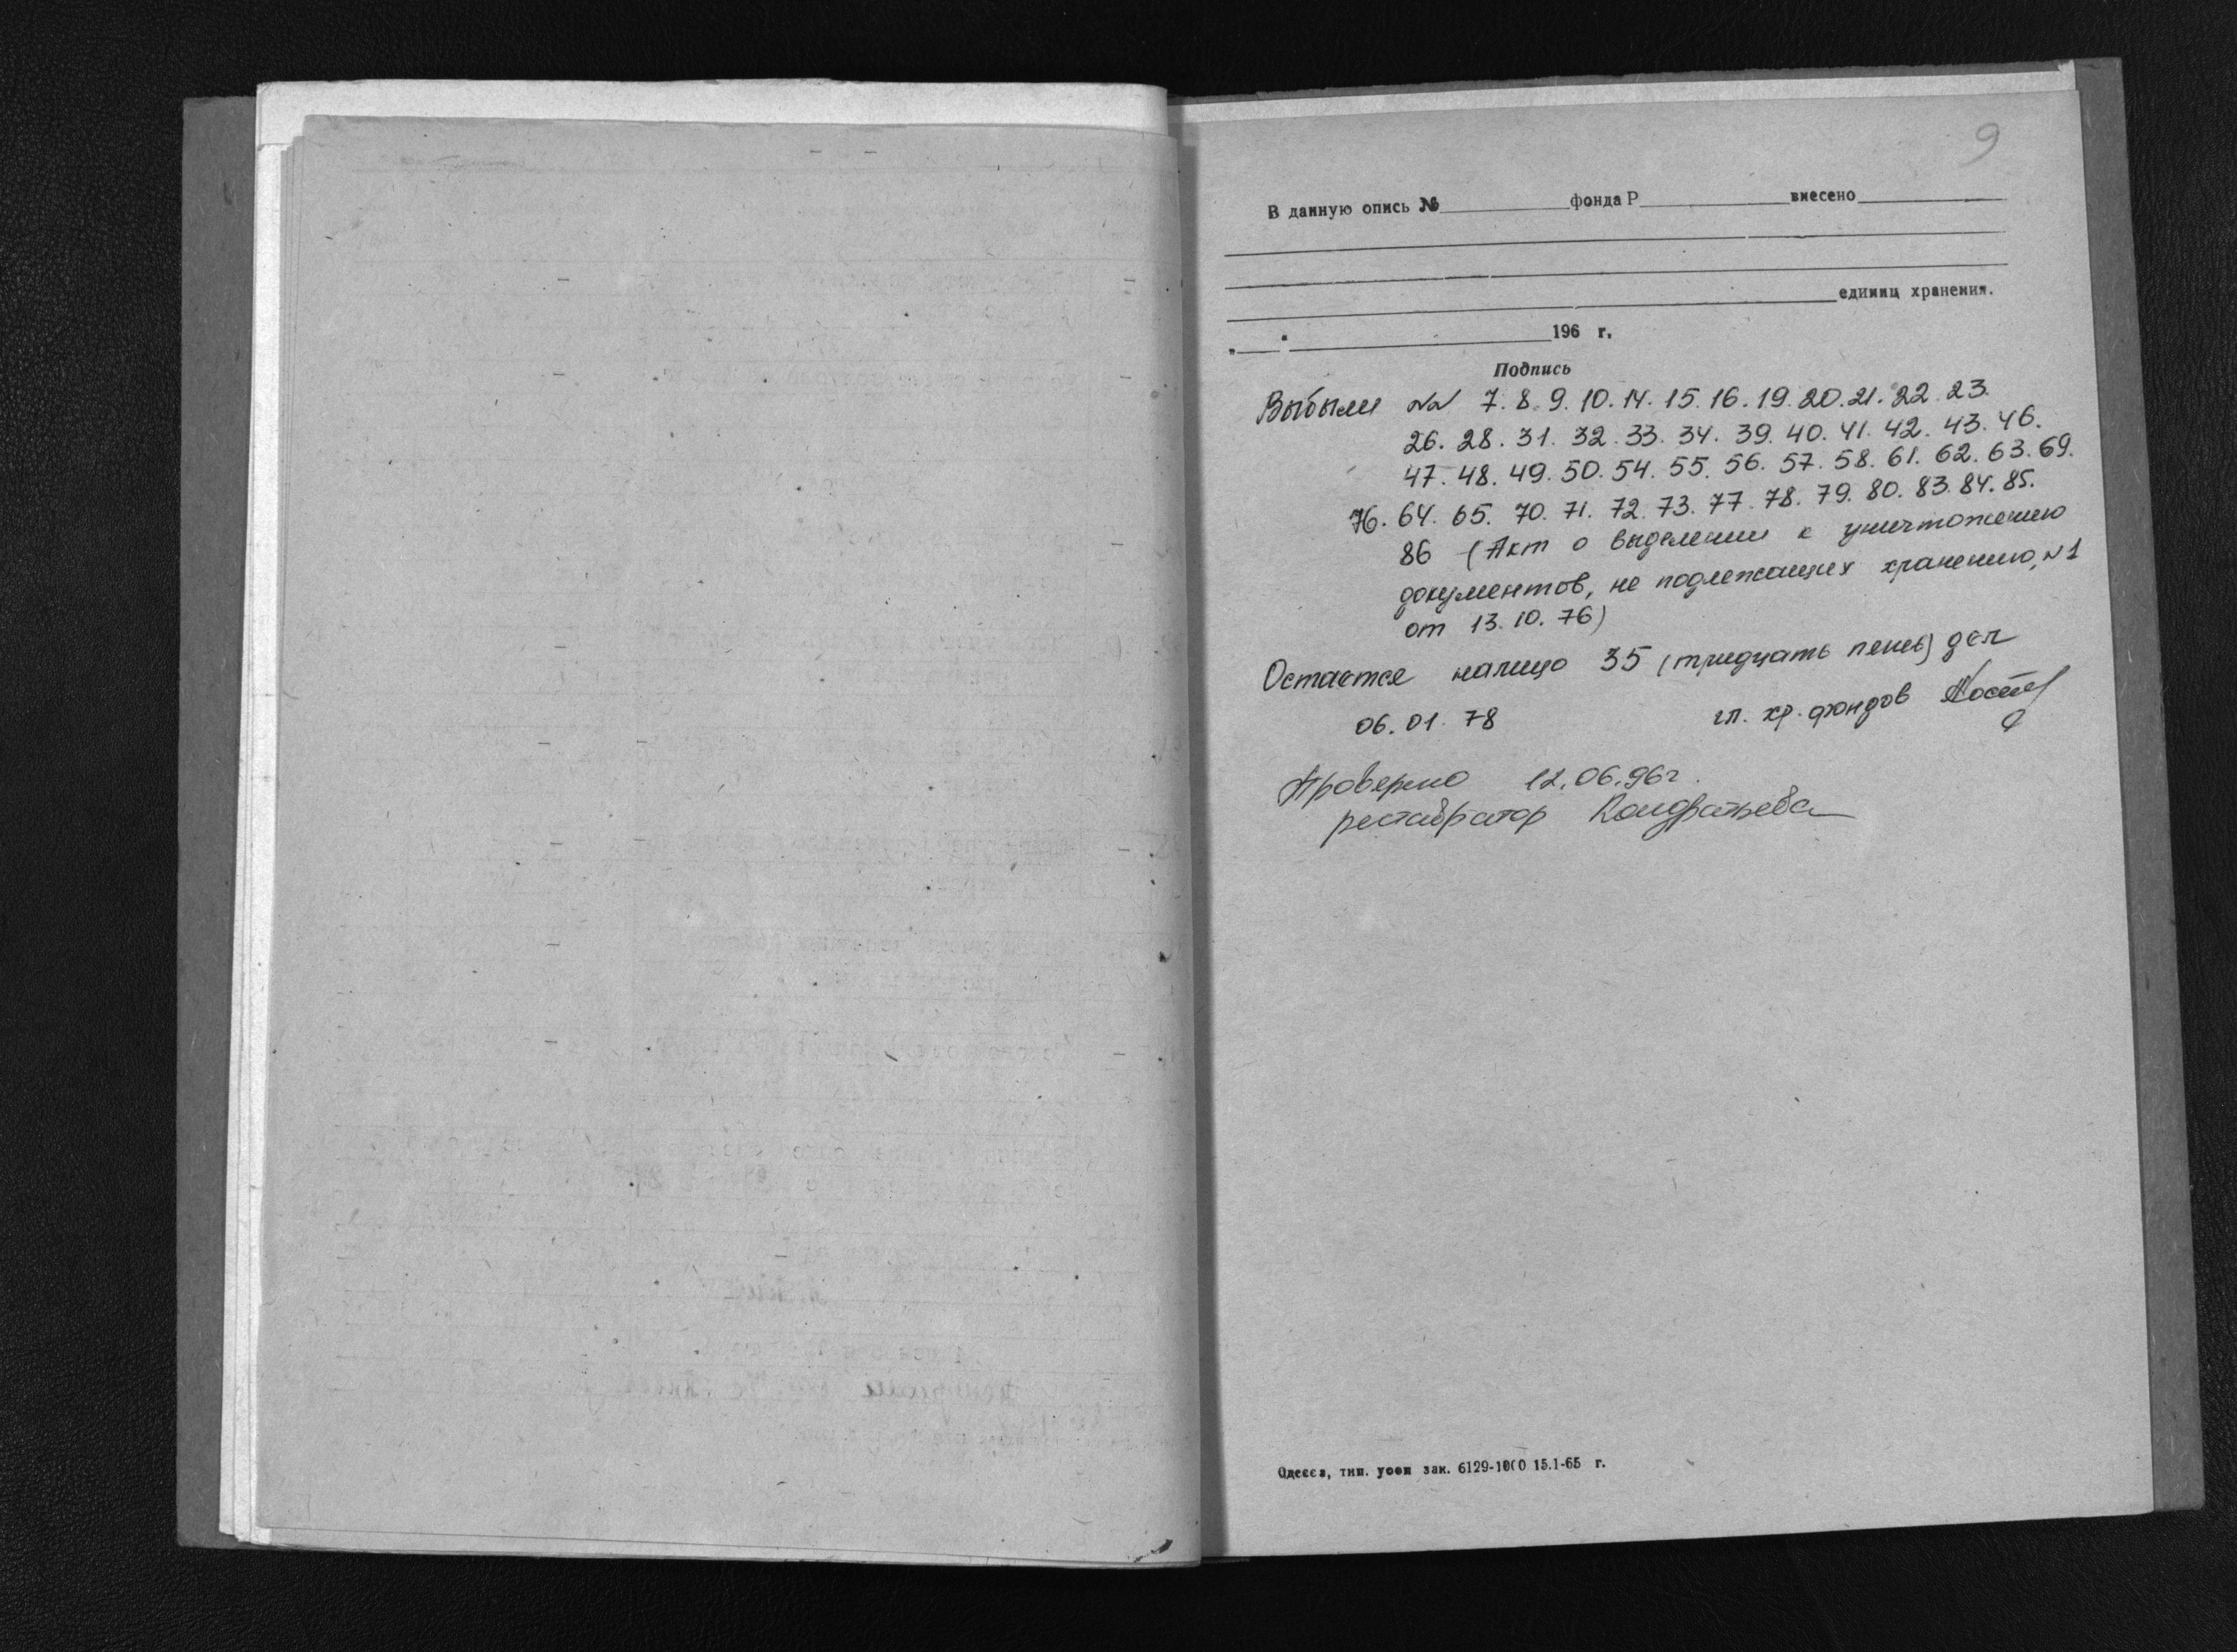 9
В данную опись № ________ фонда Р ________ внесено ________
единиц хранения.
„___" ________ 196 г.
Подпись
Выбыли NN 7. 8. 9. 10. 14. 15. 16. 19. 20. 21. 22. 23.
26. 28. 31. 32. 33. 34. 39. 40. 41. 42. 43. 46.
47. 48. 49. 50. 54. 55. 56. 57. 58. 61. 62. 63. 69.
76. 64. 65. 70. 71. 72. 73. 77. 78. 79. 80. 83. 84. 85.
86 (Акт о выделении к уничтожению
документов, не подлежащих хранению, N 1
от 13.10.76)
Остается налицо 35 (тридцать пять) дел
06.01.78 гл. хр. фондов
Проверено 12.06.96г.
реставратор Кондратьева
Одесса, тип. зак. 6129-1000 15.1-65 г.